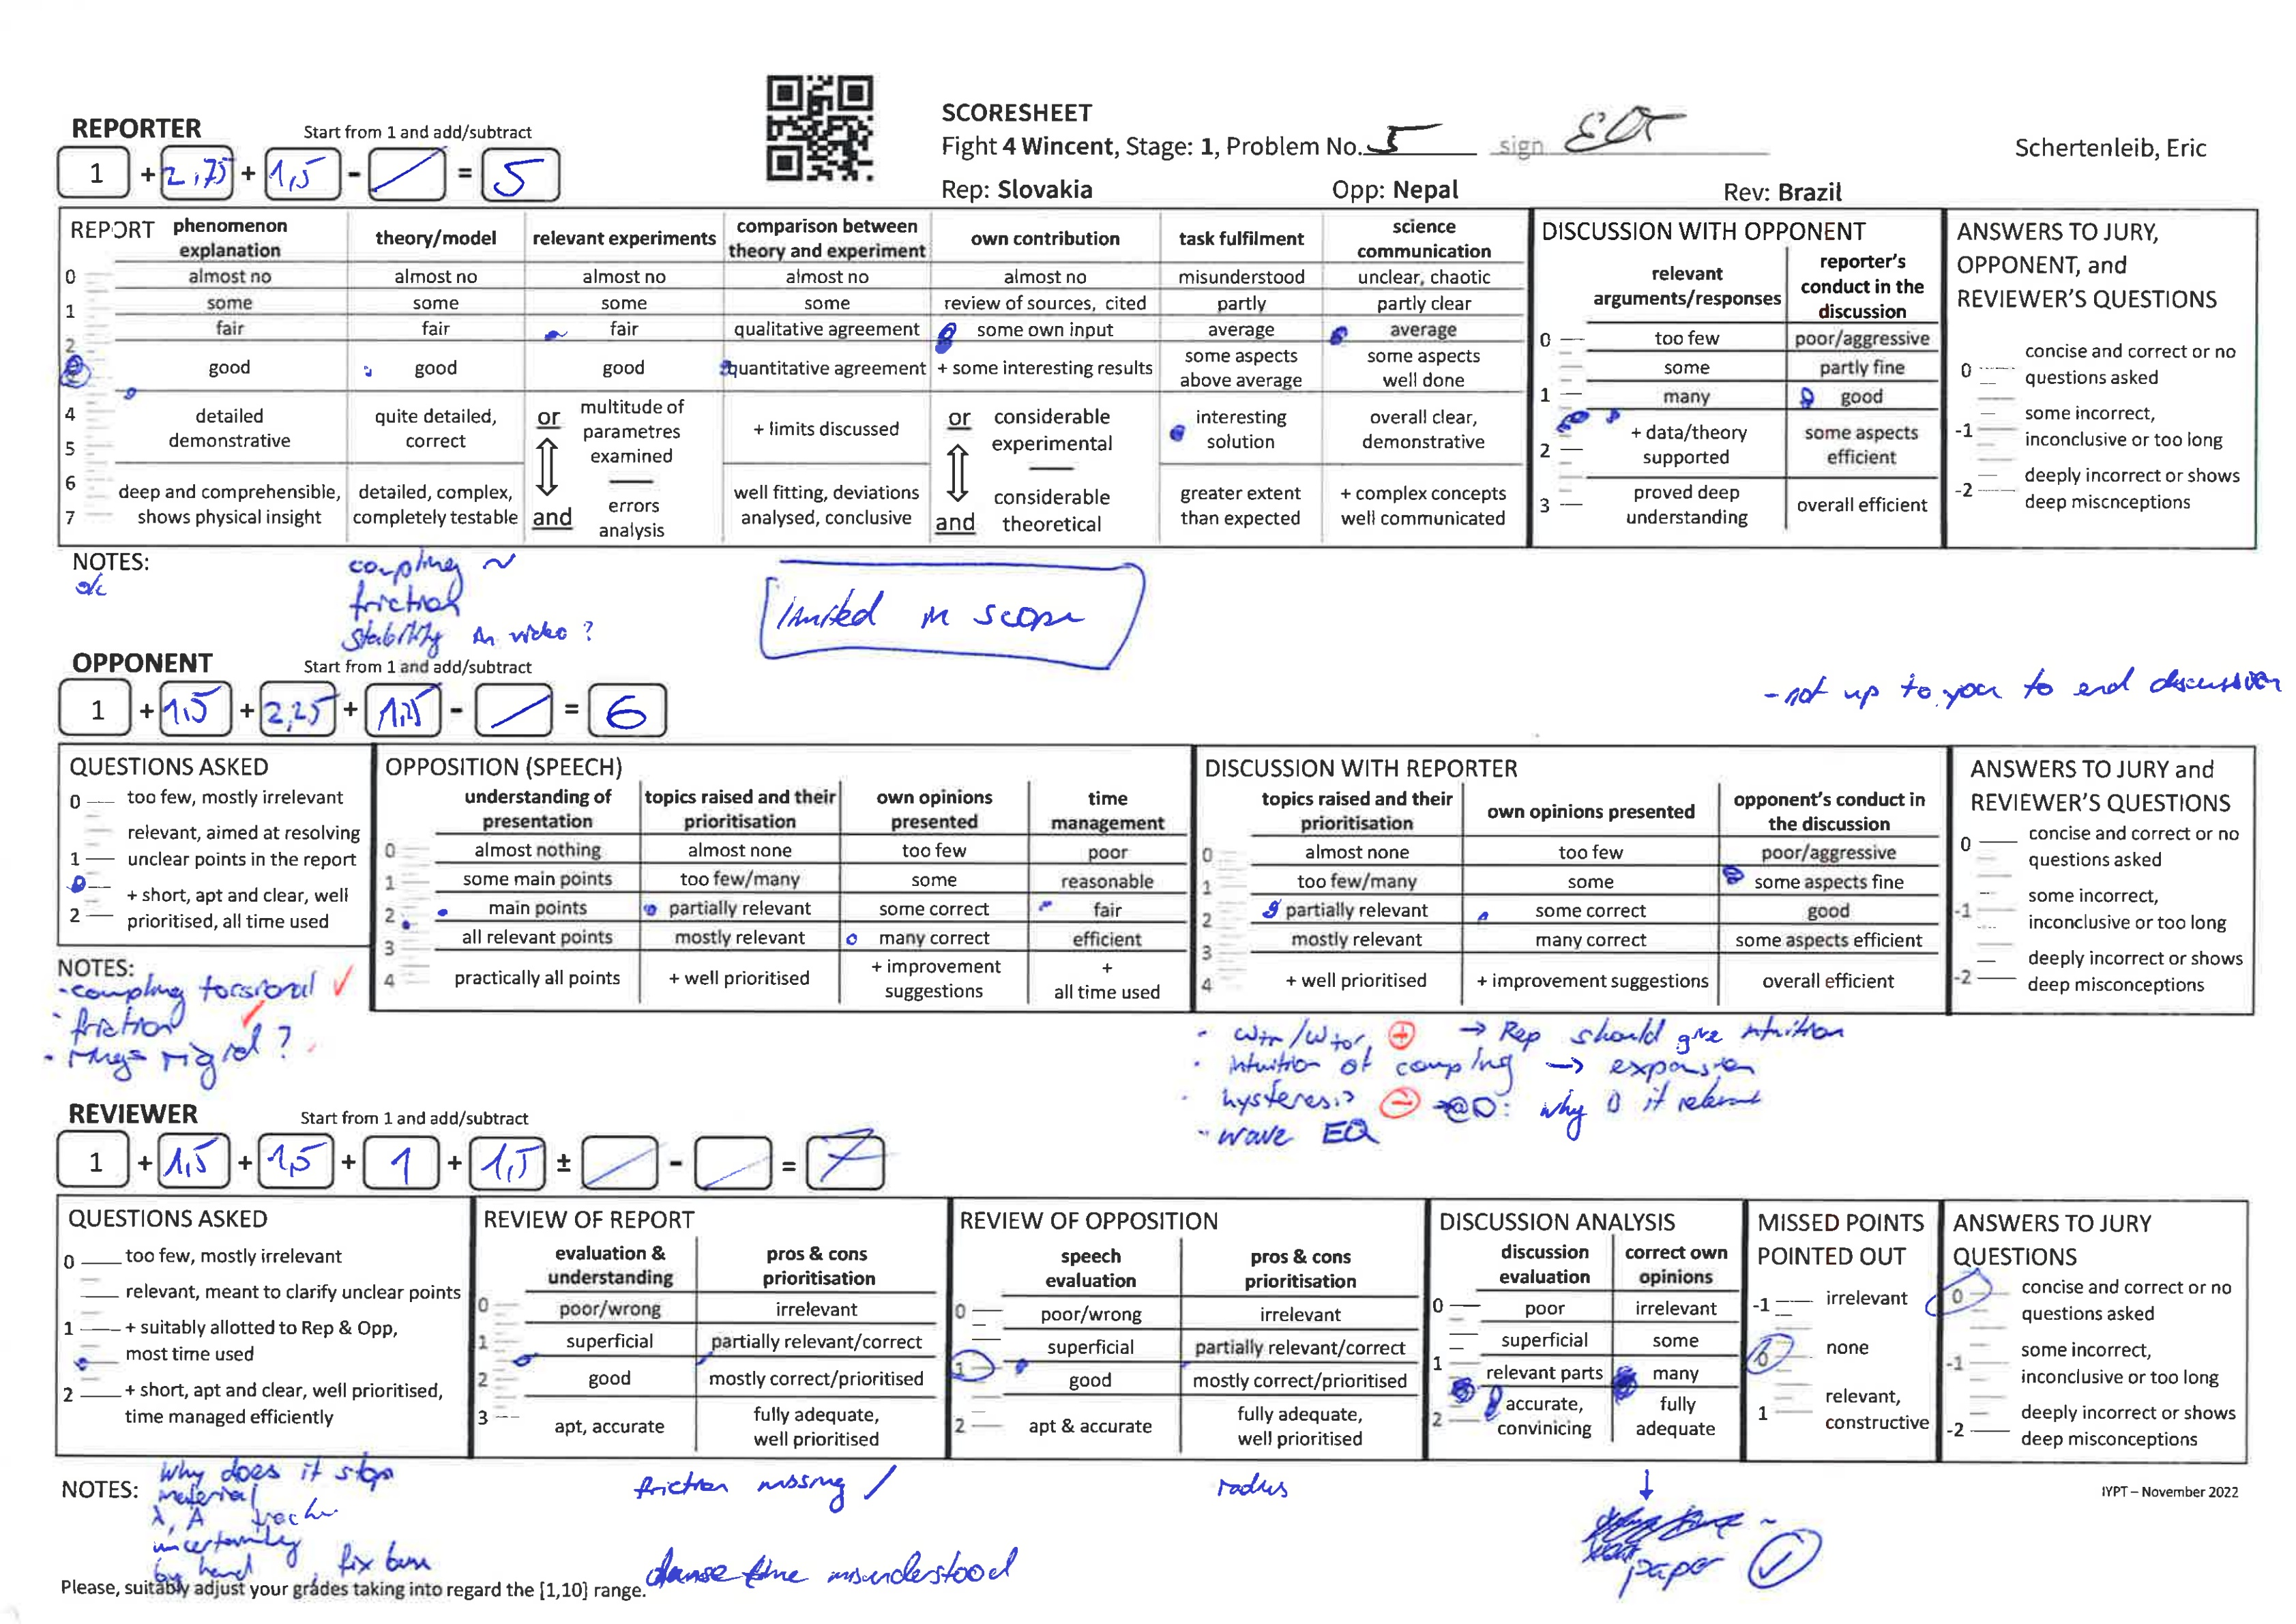 SCORESHEET
Fight 4 Wincent, Stage: 1, Problem No. 5 sign
Schertenleib, Eric
Rep: Slovakia Opp: Nepal Rev: Brazil
REPORTER Start from 1 and add/subtract
1 + 2,75 + 1,5 - / = 5
REPORT
phenomenon explanation
theory/model
relevant experiments
comparison between theory and experiment
own contribution
task fulfilment
science communication
0 almost no almost no almost no almost no almost no misunderstood unclear, chaotic
1 some some some some review of sources, cited partly partly clear
fair fair fair qualitative agreement some own input average average
2
good good good quantitative agreement + some interesting results some aspects above average some aspects well done
4
5
detailed demonstrative
quite detailed, correct
or
multitude of parametres examined
+ limits discussed
or
considerable experimental
interesting solution
overall clear, demonstrative
6
7
deep and comprehensible, shows physical insight
detailed, complex, completely testable
and
errors analysis
well fitting, deviations analysed, conclusive
and
considerable theoretical
greater extent than expected
+ complex concepts well communicated
DISCUSSION WITH OPPONENT
relevant arguments/responses
reporter's conduct in the discussion
0 too few poor/aggressive
some partly fine
1 many good
2 + data/theory supported some aspects efficient
3 proved deep understanding overall efficient
ANSWERS TO JURY,
OPPONENT, and
REVIEWER'S QUESTIONS
0 concise and correct or no questions asked
-1 some incorrect, inconclusive or too long
-2 deeply incorrect or shows deep miscnceptions
NOTES:
ok
coupling ~
friction
stability in video ?
limited in scope
OPPONENT Start from 1 and add/subtract
1 + 1,5 + 2,25 + 1,25 - / = 6
- not up to you to end discussion
QUESTIONS ASKED
0 too few, mostly irrelevant
relevant, aimed at resolving
1 unclear points in the report
+ short, apt and clear, well
2 prioritised, all time used
OPPOSITION (SPEECH)
understanding of presentation
topics raised and their prioritisation
own opinions presented
time management
0 almost nothing almost none too few poor
1 some main points too few/many some reasonable
2 main points partially relevant some correct fair
3 all relevant points mostly relevant many correct efficient
4 practically all points + well prioritised + improvement suggestions + all time used
DISCUSSION WITH REPORTER
topics raised and their prioritisation
own opinions presented
opponent's conduct in the discussion
0 almost none too few poor/aggressive
1 too few/many some some aspects fine
2 partially relevant some correct good
3 mostly relevant many correct some aspects efficient
4 + well prioritised + improvement suggestions overall efficient
ANSWERS TO JURY and
REVIEWER'S QUESTIONS
0 concise and correct or no questions asked
-1 some incorrect, inconclusive or too long
-2 deeply incorrect or shows deep misconceptions
NOTES:
- coupling torsional ✓
- friction ✓
- rings rigid ?
- ωtr/ωtor, + → Rep should give intuition
- intuition of coupling → expansion
- hysteresis - → @O: why is it relevant
- wave EQ
REVIEWER Start from 1 and add/subtract
1 + 1,5 + 1,5 + 1 + 1,5 ± / - / = 7
QUESTIONS ASKED
0 too few, mostly irrelevant
relevant, meant to clarify unclear points
1 + suitably allotted to Rep & Opp,
most time used
2 + short, apt and clear, well prioritised,
time managed efficiently
REVIEW OF REPORT
evaluation & understanding
pros & cons prioritisation
0 poor/wrong irrelevant
1 superficial partially relevant/correct
2 good mostly correct/prioritised
3 apt, accurate fully adequate, well prioritised
REVIEW OF OPPOSITION
speech evaluation
pros & cons prioritisation
0 poor/wrong irrelevant
superficial partially relevant/correct
1 good mostly correct/prioritised
2 apt & accurate fully adequate, well prioritised
DISCUSSION ANALYSIS
discussion evaluation
correct own opinions
0 poor irrelevant
superficial some
1 relevant parts many
2 accurate, convinicing fully adequate
MISSED POINTS
POINTED OUT
-1 irrelevant
0 none
1 relevant, constructive
ANSWERS TO JURY
QUESTIONS
0 concise and correct or no questions asked
-1 some incorrect, inconclusive or too long
-2 deeply incorrect or shows deep misconceptions
NOTES:
Why does it stop
material
λ, A
uncertainty
by hand, fix
friction missing /
time misunderstood
radius
paper ✓
IYPT – November 2022
Please, suitably adjust your grades taking into regard the [1,10] range.